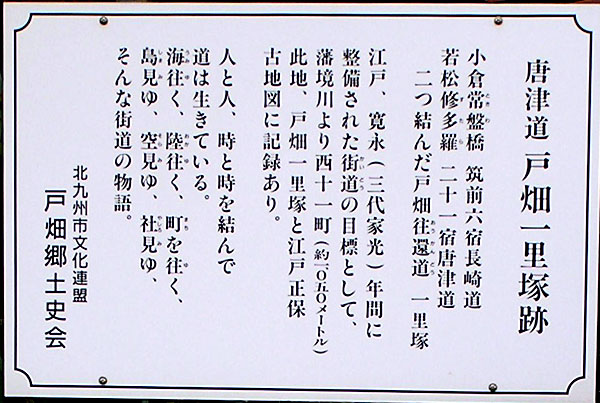 唐津道 戸畑一里塚跡
小倉常盤橋 筑前六宿長崎道
若松修多羅 二十一宿唐津道
二つ結んだ戸畑往還道 一里塚
江戸、寛永(三代家光)年間に
整備された街道の目標として、
藩境川より西十一町(約一〇五〇メートル)
此地、戸畑一里塚と江戸正保
古地図に記録あり。
人と人、時と時を結んで
道は生きている。
海往く、陸往く、町を往く、
島見ゆ、空見ゆ、社見ゆ、
そんな街道の物語。
北九州市文化連盟
戸畑郷土史会